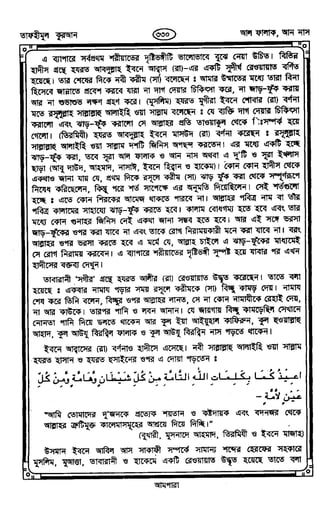 তাফহীমুল কুরআন ৩৩০ আল ফালাক, আন নাস
এ ব্যাপারে সর্বপ্রথম শরীয়াতের দৃষ্টিভঙ্গীটি ভালোভাবে বুঝে নেয়া উচিত। বিভিন্ন
হাদীস গ্রন্থে হযরত আবদুল্লাহ ইবনে আব্বাস (রা)-এর একটি সুদীর্ঘ রেওয়ায়াত বর্ণিত
হয়েছে। তার শেষের দিকে নবী করীম (সা) বলেছেন : আমার উম্মাতের মধ্যে তারা বিনা
হিসেবে জান্নাতে প্রবেশ করবে যারা না দাগ দেয়ার চিকিৎসা করে, না ঝাড়-ফুঁক করায়
আর না শুভাশুভ লক্ষণ গ্রহণ করে। (মুসলিম) হযরত মুগীরা ইবনে শোবার (রা) বর্ণনা
মতে রসূলুল্লাহ সাল্লাল্লাহু আলাইহি ওয়া সাল্লাম বলেছেন : যে ব্যক্তি দাগ দেয়ার চিকিৎসা
করালো এবং ঝাড়-ফুঁক করালো সে আল্লাহর প্রতি তাওয়াক্কুল থেকে নিঃসম্পর্ক হয়ে
গেলো। (তিরমিযী) হযরত আবদুল্লাহ ইবনে মাসউদ (রা) বর্ণনা করেছেন : রসূলুল্লাহ
সাল্লাল্লাহু আলাইহি ওয়া সাল্লাম দশটি জিনিস অপছন্দ করতেন। এর মধ্যে একটি হচ্ছে
ঝাড়-ফুঁক করা, তবে সূরা আল ফালাক ও আন নাস অথবা এ দু'টি ও সূরা ইখলাস
ছাড়া (আবু দাউদ, আহমাদ, নাসাঈ, ইবনে হিব্বান ও হাকেম)। কোন কোন হাদীস থেকে
একথাও জানা যায় যে, প্রথম দিকে রসূলে করীম (সা) ঝাড় ফুঁক করা থেকে সম্পূর্ণরূপে
নিষেধ করেছিলেন, কিন্তু পরে শর্ত সাপেক্ষে এর অনুমতি দিয়েছিলেন। সেই শর্তগুলো
হচ্ছে : এতে কোন শিরকের আমেজ থাকতে পারবে না। আল্লাহর পবিত্র নাম বা তাঁর
পবিত্র কালামের সাহায্যে ঝাড়-ফুঁক করতে হবে। কালাম বোধগম্য হতে হবে এবং তার
মধ্যে কোন গুনাহর জিনিস নেই একথা জানা সম্ভব হতে হবে। আর এই সঙ্গে ভরসা
ঝাড়-ফুঁকের ওপর করা যাবে না এবং তাকে রোগ নিরাময়কারী মনে করা যাবে না। বরং
আল্লাহর ওপর ভরসা করতে হবে এ মর্মে যে, আল্লাহ চাইলে এ ঝাড়-ফুঁকের মাধ্যমেই
সে রোগ নিরাময় করবেন। এ ব্যাপারে শরীয়াতের দৃষ্টিভঙ্গী সুস্পষ্ট হয়ে যাবার পর এখন
হাদীসের বক্তব্য দেখুন।
তাবারানী 'সগীর' গ্রন্থে হযরত আলীর (রা) রেওয়ায়াত উদ্ধৃত করেছেন। তাতে বলা
হয়েছে : একবার নামায পড়ার সময় রসূলে করীমকে (সা) বিচ্ছু কামড় দেয়। নামায
শেষ করে তিনি বলেন, বিচ্ছুর ওপর আল্লাহর লানত, সে না কোন নামাযীকে রেহাই দেয়,
না আর কাউকে। তারপর পানি ও লবন আনান। যে জায়গায় বিচ্ছু কামড়েছিল সেখানে
নোনতা পানি দিয়ে ডলতে থাকেন আর কুল ইয়া আইয়ুহাল কাফিরুন, কুল হুওয়াল্লাহু
আহাদ, কুল আউযু বিরব্বিল ফালাক ও কুল আউযু বিরব্বিন নাস পড়তে থাকেন।
ইবনে আব্বাসের (রা) বর্ণনাও হাদীসে এসেছে। নবী সাল্লাল্লাহু আলাইহি ওয়া সাল্লাম
হযরত হাসান ও হযরত হুসাইনের ওপর এ দোয়া পড়তেন :
اعيذ كما بكلمات الله التامة من كل شيطان وهامة ومن كل
عين لامة -
"আমি তোমাদের দু'জনকে প্রত্যেক শয়তান ও কষ্টদায়ক এবং বদনজর থেকে
আল্লাহর ত্রুটিমুক্ত কালেমাসমূহের আশ্রয়ে দিয়ে দিচ্ছি।"
(বুখারী, মুসনাদে আহমাদ, তিরমিযী ও ইবনে মাজাহ)
উসমান ইবনে আবিল আস সাকাফী সম্পর্কে সামান্য শব্দের হেরফের সহকারে
মুসলিম, মুআত্তা, তাবারানী ও হাকেমে একটি রেওয়ায়াত উদ্ধৃত হয়েছে তাতে বলা
আমপারা